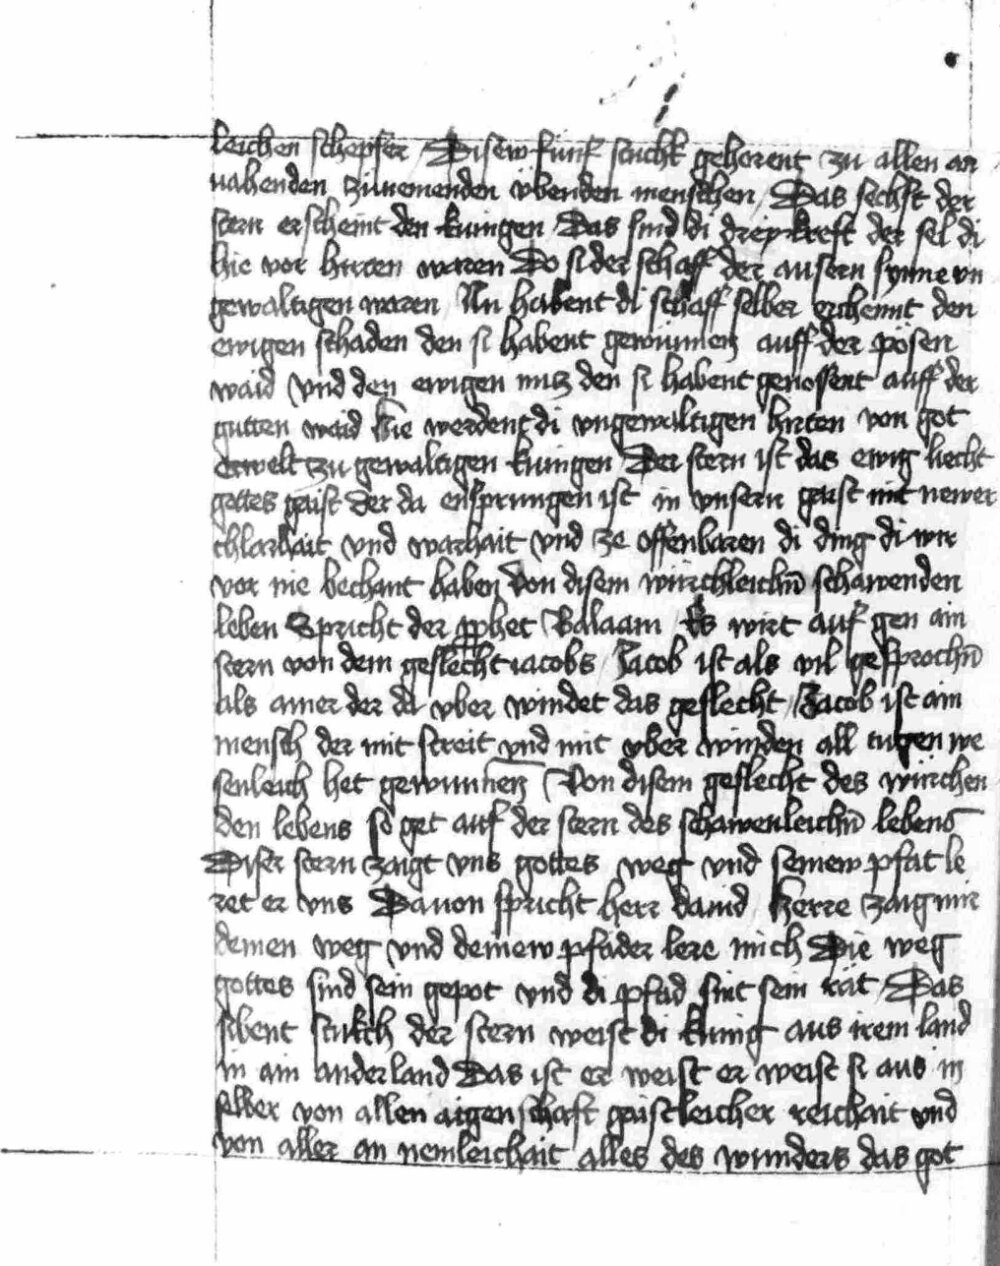 leichen schepfer / Disew funf stuchk gehorent zu allen an
nahenden zunemenden vbenden menschen / Das sechst der
stern erscheint den kunigen / Das sind di drey kreft der sel di
hie vor hirten waren Do si der schaff der ausern synne vn
gewaltigen waren / Nu habent di schaff selber erchennt den
ewigen schaden den si habent gewunnen auff der pösen
waid / vnd den ewigen nucz den si habent genossent auff der
gutten waid hie werdent di vngewaltigen hirten von got
erwelt zu gewaltigen kunigen / Der stern ist das ewig liecht
gottes gaist der da ensprungen ist in vnsern gaist mit newer
chlarhait vnd warhait vnd ze offenbaren di ding di wir
vor nie bechant haben Von disem würchleichn̄ schawenden
leben Spricht der ꝓphet Balaam Es wirt auf gen ain
stern von dem geslecht iacobs / Jacob ist als vil gesprochn̄
als ainer der da vber windet das geslecht / Jacob ist ain
mensch der mit streit vnd mit vber winden all tugen we
senleich het gewunnen / Von disem geslecht des würchen
den lebens so get auf der stern des schawenleichn̄ lebens
Diser stern zaigt vns gottes weg vnd seinew pfat le
ret er vns Dauon spricht herr dauid Herre zaig mir
deinen weg vnd deinew pfader lere mich Die weg
gottes sind sein gepot vnd di pfad sint sein rät / Das
sibent stukch der stern weist di kunig aus irem land
in ain anderland Das ist er weist er weist si aus in
selber von allen aigenschaft gaistleicher reichait vnd
von aller an nemleichait alles des wunders das got